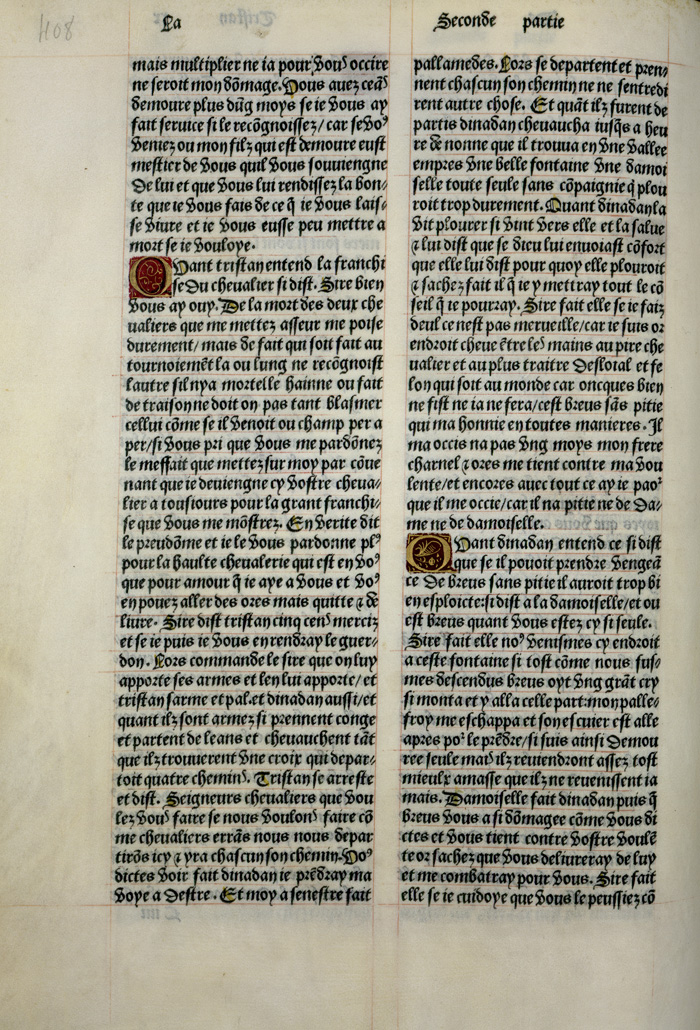 408
La
Seconde partie
mais multiplier ne ia pour vouˢ occire
ne seroit mon dōmage. Vous auez ceās
demoure plus dūg moys se ie vous ay
fait seruice si le recōgnoissez/ car se voˀ
veniez ou mon filz qui est demoure eust
mestier de vous quil vous souuiengne
De lui et que vous lui rendissez la bon⸗
te que ie vous fais de ce q̄ ie vous lais⸗
se viure et ie vous eusse peu mettre a
mort se ie vouloye.
Quant tristan entend la franchi
se du cheualier si dist. Sire bien
vous ay ouy. De la mort des deux che
ualiers que me mettez asseur me poise
durement/ mais de fait qui soit fait au
tournoiemēt la ou lung ne recōgnoist
lautre sil nya mortelle hainne ou fait
de traison ne doit on pas tant blasmer
cellui cōme se il venoit ou champ per a
per/si vous pri que vous me pardōnez
le meffait que mettez sur moy par cōue
nant que ie deuiengne cy vostre cheua⸗
lier a tousiours pour la grant franchi⸗
se que vous me mōstrez. En verite dit
le preudōme et ie le vous pardonne plˀ
pour la haulte cheualerie qui est en voˀ
que pour amour q̄ ie aye a vous et voˀ
en pouez aller des ores mais quitte ⁊ de
liure. Sire dist tristan cinq cenˢ merciz
et se ie puis ie vous en rendray le guer⸗
don. Lors commande le sire que on luy
apporte ses armes et len lui apporte/ et
tristan sarme et pal.et dinadan aussi/et
quant ilz sont armez si prennent conge
et partent de leans et cheuauchent tāt
que ilz trouuerent vne croix qui depar⸗
toit quatre cheminˢ. Tristan se arreste
et dist. Seigneurs cheualiers que vou
lez vouˢ faire se nous voulonˢ faire cō
me cheualiers errās nous nous depar
tirōs icy ⁊ yra chascun son chemin. Voˀ
dictes voir fait dinadan ie prēdray ma
voye a destre. Et moy a senestre fait
pallamedes. Lors se departent et pren⸗
nent chascun son chemin ne ne sentredi
rent autre chose. Et quāt ilz furent de
partis dinadan cheuaucha iusq̄s a heu
re de nonne que il trouua en vne vallee
empres vne belle fontaine vne damoi
selle toute seule sans cōpaignie q̄ plou
roit trop durement. Quant dinadan la
vit plourer si vint vers elle et la salue
⁊ lui dist que se dieu lui enuoiast cōfort
que elle lui dist pour quoy elle plouroit
⁊ sachez fait il q̄ ie y mettray tout le cō
seil q̄ ie pourray. Sire fait elle se ie faiz
deul ce nest pas merueille/car ie suis or
endroit cheue ētre leˢ mains au pire che
ualier et au plus traitre desloial et fe
lon qui soit au monde car oncques bien
ne fist ne ia ne fera/cest breus sās pitie
qui ma honnie en toutes manieres. Il
ma occis na pas vng moys mon frere
charnel ⁊ ores me tient contre ma vou
lente/et encores auec tout ce ay ie paoᷣ
que il me occie/car il na pitie ne de da⸗
me ne de damoiselle.
Quant dinadan entend ce si dist
que se il pouoit prendre vengeā
ce de breus sans pitie il auroit trop bi
en esploicte:si dist a la damoiselle/et ou
est breus quant vous estez cy si seule.
Sire fait elle noˀ venismes cy endroit
a ceste fontaine si tost cōme nous fus⸗
mes descendus breus oyt vng grāt cry
si monta et y alla celle part:mon palle⸗
froy me eschappa et son escuier est alle
apres poᷣ le prēdre/si suis ainsi demou
ree seule maiˢ ilz reuiendront assez tost
mieulx amasse que ilz ne reuenissent ia
mais. Damoiselle fait dinadan puis q̄
breus vous a si dōmagee cōme vous di
ctes et vous tient contre vostre voulē
te or sachez que vous deliureray de luy
et me combatray pour vous. Sire fait
elle se ie cuidoye que vous le peussiez cō